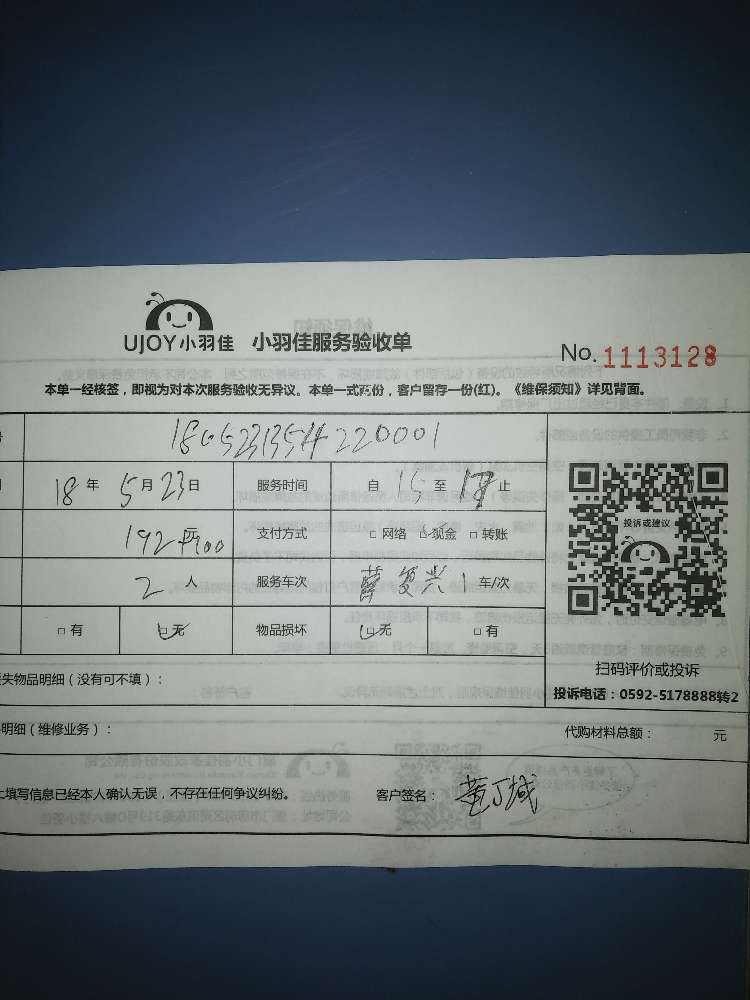 UJOY小羽佳 小羽佳服务验收单
No. 1113128
本单一经核签，即视为对本次服务验收无异议。本单一式两份，客户留存一份(红)。《维保须知》详见背面。
180523135H220001
18年5月23日 服务时间 自15至17止
192 支付方式 □网络 □现金 □转账
2人 服务车次 薛复兴1车/次
□有 □无 物品损坏 □无 □有
投诉或建议
扫码评价或投诉
投诉电话：0592-5178888转2
失物品明细（没有可不填）：
明细（维修业务）： 代购材料总额： 元
填写信息已经本人确认无误，不存在任何争议纠纷。 客户签名：